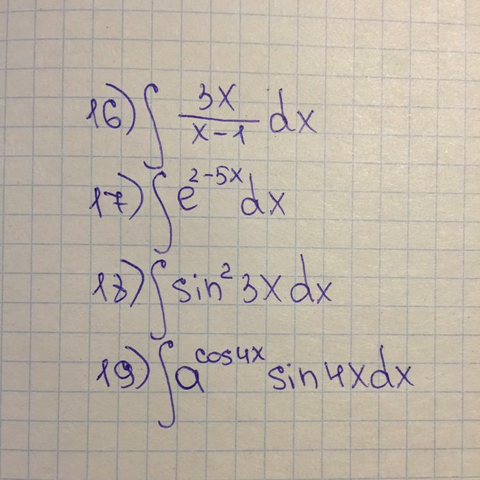 16) ∫ 3x/(x-1) dx
17) ∫ e^(2-5x) dx
18) ∫ sin² 3x dx
19) ∫ a^(cos4x) sin4x dx